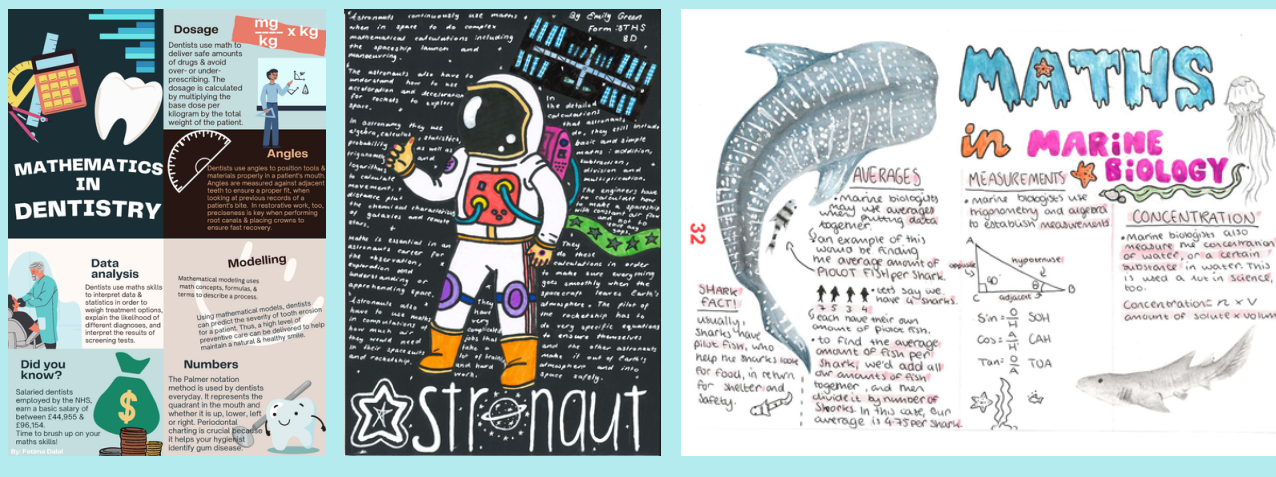 MATHEMATICS
IN
DENTISTRY
Dosage
mg
kg
x kg
Dentists use math to
deliver safe amounts
of drugs & avoid
over- or under-
prescribing. The
dosage is calculated
by multiplying the
base dose per
kilogram by the total
weight of the patient.
Angles
Dentists use angles to position tools &
materials properly in a patient's mouth.
Angles are measured against adjacent
teeth to ensure a proper fit, when
looking at previous records of a
patient's bite. In restorative work, too,
preciseness is key when performing
root canals & placing crowns to
ensure fast recovery.
Data
analysis
Dentists use maths skills
to interpret data &
statistics in order to
weigh treatment options,
explain the likelihood of
different diagnoses, and
interpret the results of
screening tests.
Modelling
Mathematical modeling uses
math concepts, formulas, &
terms to describe a process.
Using mathematical models, dentists
can predict the severity of tooth erosion
for a patient. Thus, a high level of
preventive care can be delivered to help
maintain a natural & healthy smile.
Did you
know?
Salaried dentists
employed by the NHS,
earn a basic salary of
between £44,955 &
£96,154.
Time to brush up on your
maths skills!
By: Fatima Dalal
$
Numbers
The Palmer notation
method is used by dentists
everyday. It represents the
quadrant in the mouth and
whether it is up, lower, left
or right. Periodontal
charting is crucial because
it helps your hygienist
identify gum disease.
Astronauts continuously use maths
when in space to do complex
mathematical calculations including
the spaceship launch and
manoeuvring.
By Emily Green
Form 8THS
8D
The astronauts also have to
understand how to use
acceleration and deceleration
for rockets to explore
space.
In astronomy they use
algebra, calculus, statistics,
probability as well as
trigonometry and
logarithms
to calculate
movement,
distance plus
the chemical characteristics
of galaxies and remote
stars.
Maths is essential in an
astronauts career for
the observation,
exploration and
understanding or
apprehending space.
Astronauts also
have to use maths
in computations of
how much air
they would need
in their spacesuits
and rocketship.
They
have
very
complicated
jobs that
take a
lot of training
and hard
work.
In
the detailed
calculations
that astronauts
do, they still include
basic and simple
maths: addition,
subtraction,
division and
multiplication.
The engineers have
to calculate how
to make a spaceship
with constant air flow
and not so
any
gaps.
They
do these
calculations in order
to make sure everything
goes smoothly when the
spacecraft leaves Earth's
atmosphere. The pilot of
the rocketship has to
do very specific equations
to ensure themselves
and the other astronauts
make it out of Earth's
atmosphere and into
space safely.
stronaut
32
MATHS
in MARINE
BIOLOGY
SHARK
FACT!
usually,
sharks have
pilot fish, who
help the sharks look
for food, in return
for shelter and
safety.
AVERAGES
• marine biologists
may use averages
when putting data
together.
an example of this
would be finding
the average amount of
PILOT FISH per shark.
• let's say we
have 4 sharks.
7 5 3 4
each have their own
amount of pilot fish.
• to find the average
amount of fish per
shark, we'd add all
our amounts of fish
together, and then
divide it by number of
sharks. In this case, our
average is 4.75 per shark
MEASUREMENTS
• marine biologists use
trigonometry and algebra
to establish measurements
A
opposite
hypotenuse
90°
θ
C
adjacent
B
Sin = O/H SOH
Cos = A/H CAH
Tan = O/A TOA
CONCENTRATION
• Marine biologists also
measure the concentration
of water, or a certain
substance in water. This
is used a lot in science,
too.
Concentration = n × V
amount of solute × volum